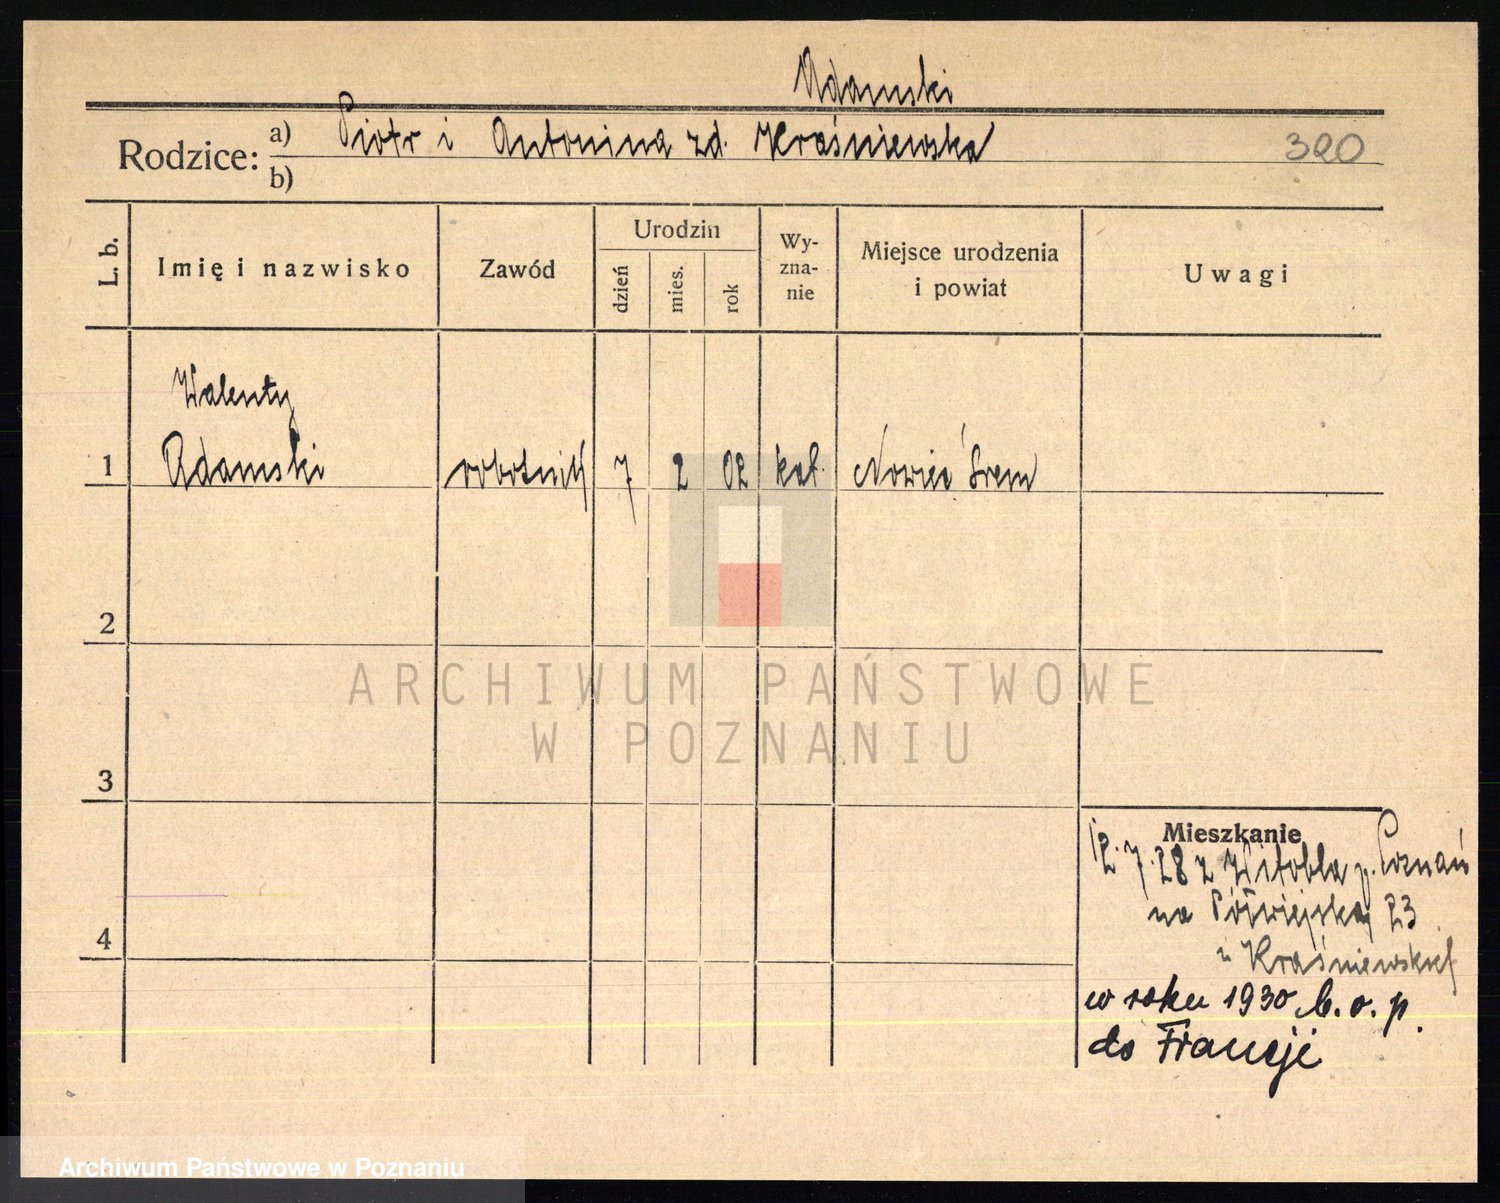 Adamski
Rodzice: a) Piotr i Antonina zd. Kraśniewska
320
b)
L. b.
Imię i nazwisko
Zawód
Urodzin
dzień
mies.
rok
Wy-
zna-
nie
Miejsce urodzenia
i powiat
Uwagi
Walenty
1 Adamski robotnik 7 2 02 kat. Nowiec Śrem
2
3
4
Mieszkanie
12.7.28 z Witobla p. Poznań
na Półwiejską 23
u Kraśniewskiej
w roku 1930 b. o. p.
do Francji
ARCHIWUM PAŃSTWOWE
W POZNANIU
Archiwum Państwowe w Poznaniu